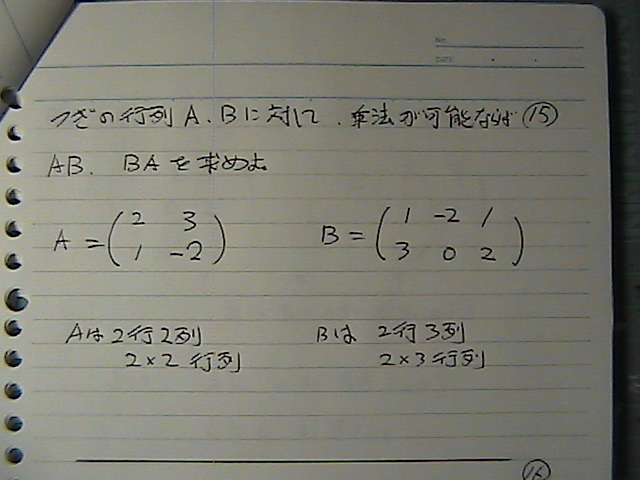 No.
DATE
つぎの行列 A、Bに対して、乗法が可能ならば ⑮
AB、 BAを求めよ
A = (2 3
1 -2)
B = (1 -2 1
3 0 2)
Aは 2行2列
2×2 行列
Bは 2行3列
2×3行列
⑯